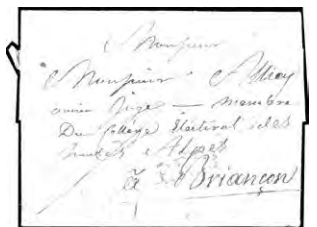 Monsieur
Monsieur
ancien Juge — membre
Du Collège Electoral des
hautes Alpes
à Briançon